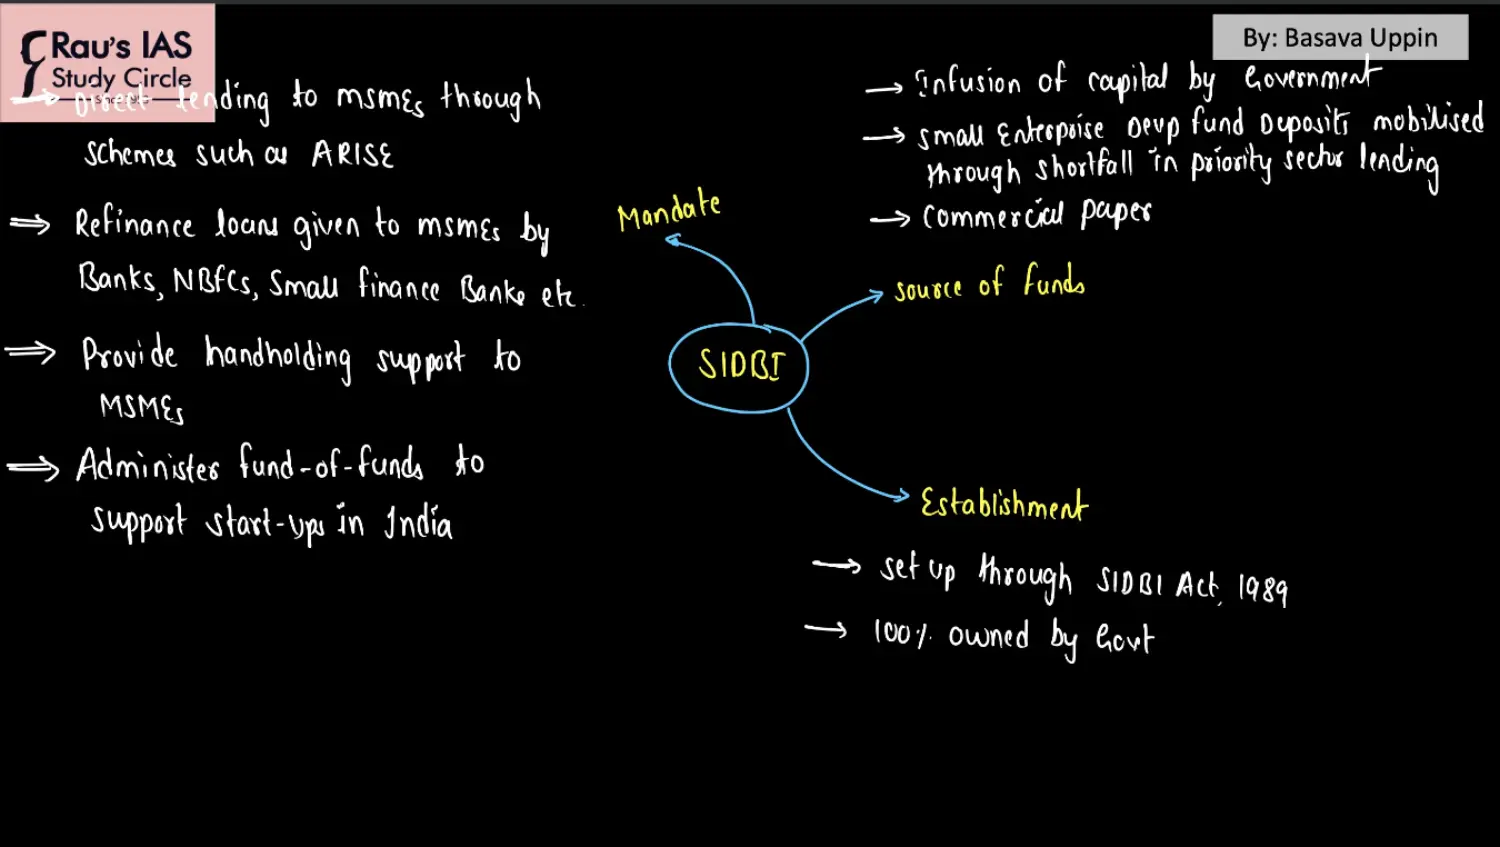 Rau's IAS
Study Circle
By: Basava Uppin
→ Direct lending to MSMEs through
schemes such as ARISE
⇒ Refinance loans given to MSMEs by
Banks, NBFCs, Small finance Banks etc.
⇒ Provide handholding support to
MSMEs
⇒ Administer fund-of-funds to
support start-ups in India
Mandate
→ Infusion of capital by Government
→ Small Enterprise Devp fund Deposits mobilised
through shortfall in priority sector lending
→ Commercial paper
Source of funds
SIDBI
Establishment
→ set up through SIDBI Act, 1989
→ 100% owned by Govt